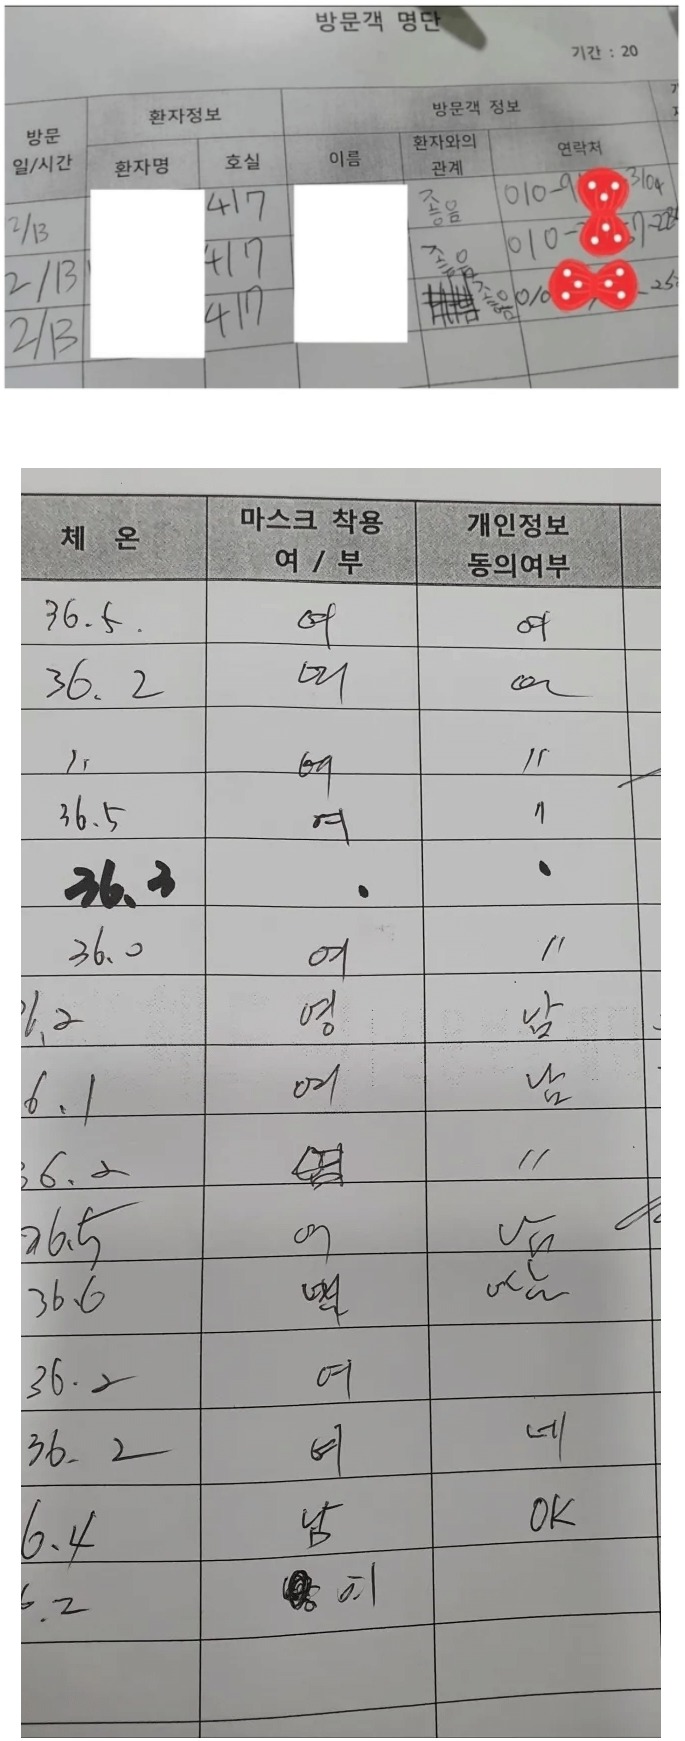 방문객 명단
기간 : 20
방문 일/시간 환자정보 방문객 정보
환자명 호실 이름 환자와의 관계 연락처
2/13 417 좋음 010-9 3104
2/13 417 좋음 010-
2/13 417 좋음 010
체 온 마스크 착용 여 / 부 개인정보 동의여부
36.5. 여 여
36.2 여
〃 여 〃
36.5 여 〃
36.3 . .
36.0 여 〃
6.2 영 남
6.1 여 남
36.2 〃
36.5 여 남
36.6
36.2 여
36.2 여 네
6.4 남 OK
6.2